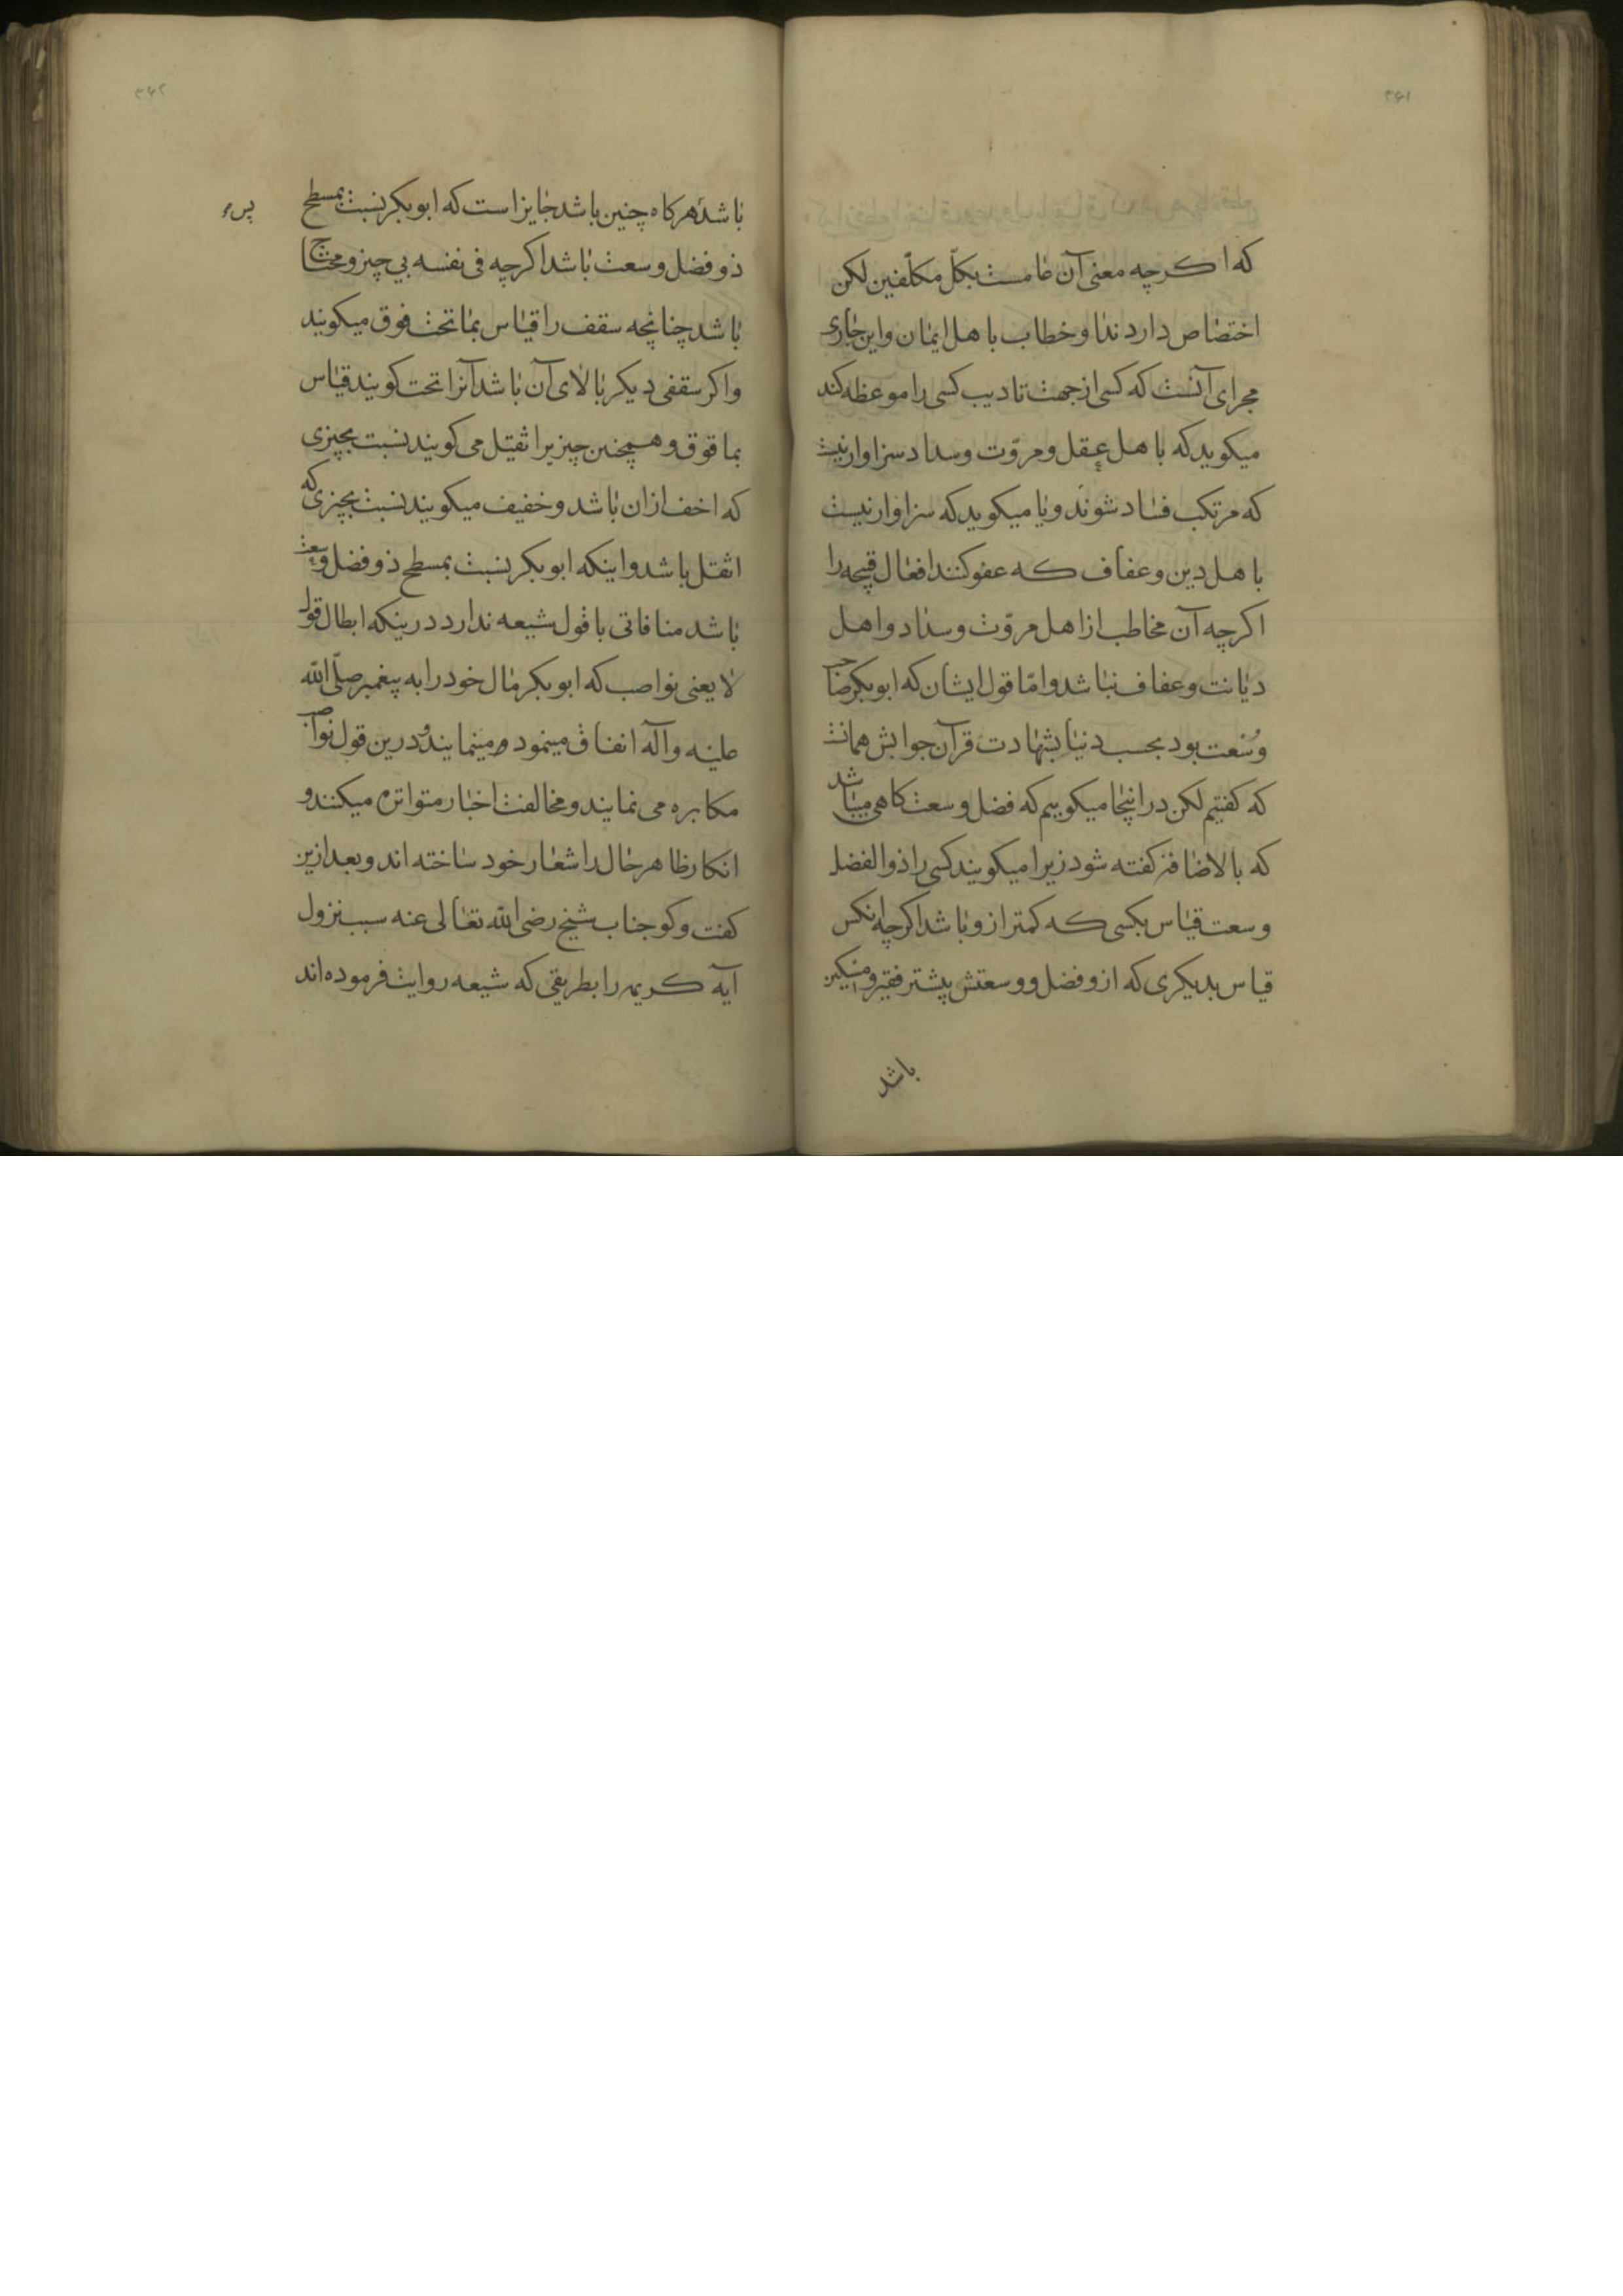 ۳۶۱
که اکرچه معنی آن عامست بکلّ مکلّفین لکن
اختصاص دارد ندا و خطاب با هل ایمان واین جاری
مجرای آنست که کسی از جهت تادیب کسی را موعظه کند
میکوید که با هل عقل و مروّت و سداد سزاوار نیست
که مرتکب فساد شوند و یا میکوید که سزاوار نیست
با هل دین و عفاف که عفو کنند افعال قبیحه را
اکرچه آن مخاطب از اهل مروّت و سداد و اهل
دیانت و عفاف نباشد و امّا قول ایشان که ابوبکر صاحب
وسعت بود بحسب دنیا بشهادت قرآن جوابش همانست
که کفتیم لکن در اینجا میکوییم که فضل و سعت کاهی میباشد
که بالاضافه کفته شود زیرا میکویند کسی را ذوالفضل
وسعت قیاس بکسی که کمتر از و باشد اکرچه آنکس
قیاس بدیکری که از و فضل و وسعتش پیشتر فقیر و مسکین
باشد
۳۶۲
باشد هرکاه چنین باشد جایز است که ابوبکر نسبت بمسطح
پس
ذو فضل و سعت باشد اکرچه فی نفسه بی چیز و محتاج
باشد چنانچه سقف را قیاس بما تحت فوق میکویند
واکر سقفی دیکر بالای آن باشد آنرا تحت کویند قیاس
بما قوق و همچنین چیزیرا ثقیل می کویند نسبت بچیزی
که اخف ازان باشد و خفیف میکویند نسبت بچیزی که
اثقل باشد و اینکه ابوبکر نسبت بمسطح ذو فضل و سعت
باشد منافاتی با قول شیعه ندارد درینکه ابطال قول
لا یعنی نواصب که ابوبکر مال خود را به پیغمبر صلّی اللّه
علیه وآله انفاق مینمود مینمایند و درین قول نواصب
مکابره می نمایند و مخالفت اخبار متواتره میکنند و
انکار ظاهر حال را شعار خود ساخته اند و بعد ازین
کفت وکو جناب شیخ رضی اللّه تعالی عنه سبب نزول
آیه کریمه را بطریقی که شیعه روایت فرموده اند